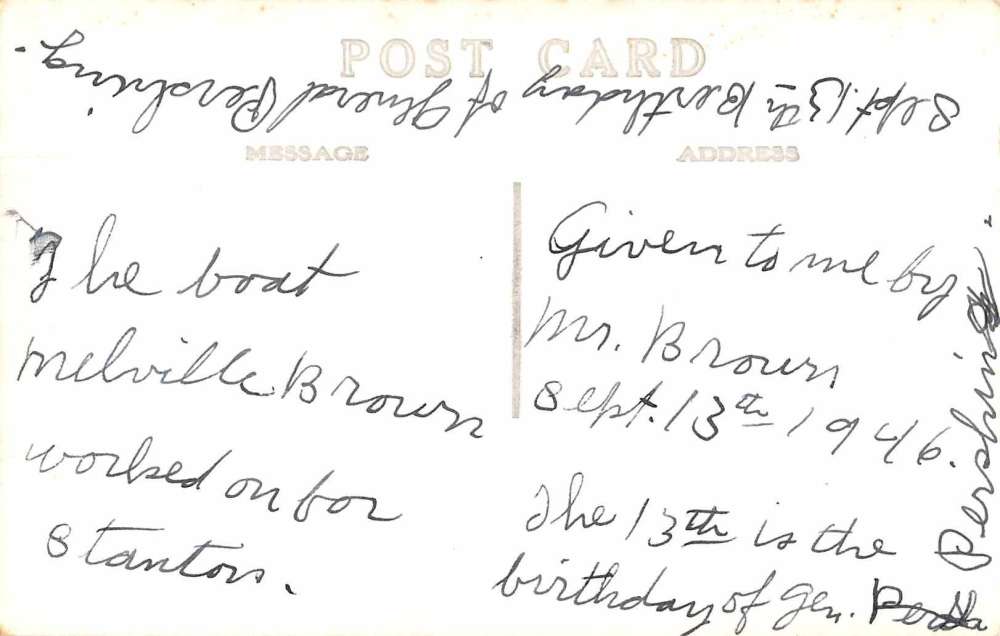 POST CARD
Sept. 13th Birthday of General Pershing.
MESSAGE
ADDRESS
The boat
Melville Brown
worked on for
Stanton.
Given to me by
Mr. Brown
Sept. 13th 1946.
The 13th is the
birthday of Gen.
Pershing.